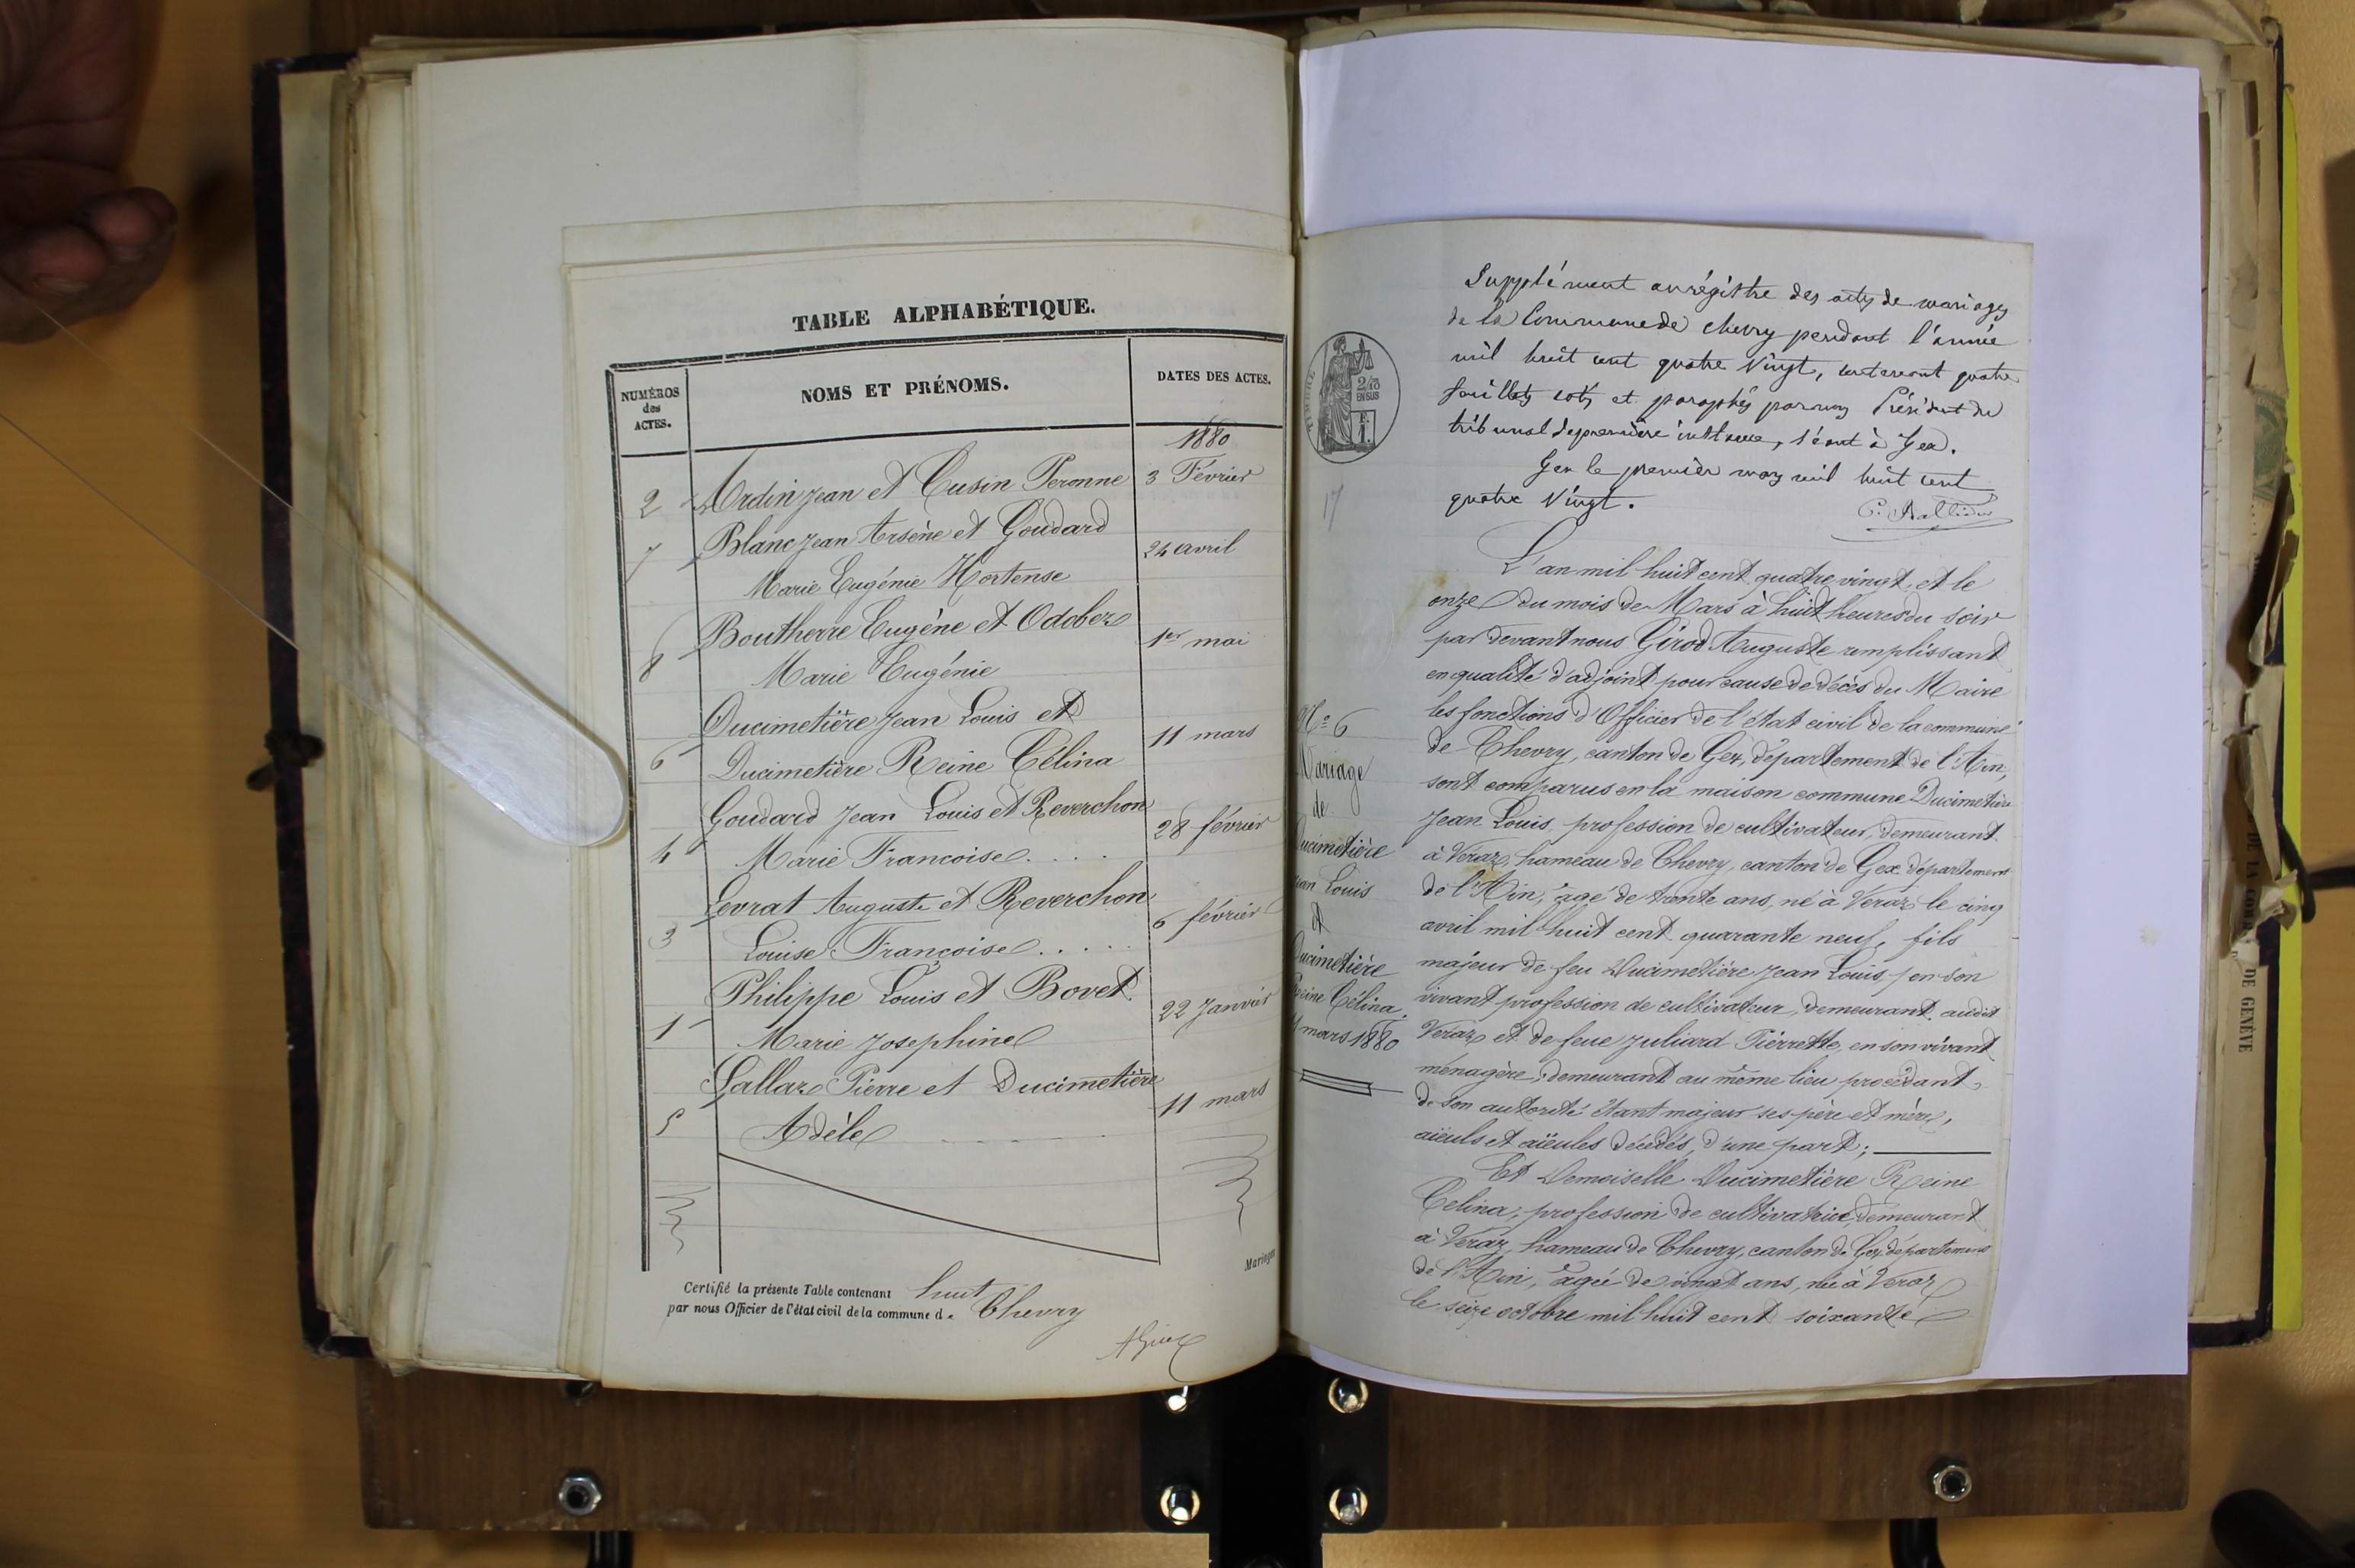 TABLE ALPHABÉTIQUE.
NUMÉROS
des
ACTES.
NOMS ET PRÉNOMS.
DATES DES ACTES.
1880
2 Ardin Jean et Cusin Peronne 3 Février
7 Blanc Jean Arsène et Goudard
Marie Eugénie Hortense
24 avril
8 Boutherre Eugène et Odobez
Marie Eugénie
1er mai
Ducimetière Jean Louis et
6 Ducimetière Reine Célina
11 mars
Goudard Jean Louis et Reverchon
4 Marie Francoise....
28 février
Levrat Auguste et Reverchon
3 Louise Françoise.....
6 février
Philippe Louis et Bovet
1 Marie Josephine
22 Janvier
Sallaz Pierre et Ducimetière
5 Adèle
11 mars
Mariages
Certifié la présente Table contenant huit
par nous Officier de l'état civil de la commune de Chevry
Supplément au régistre des actes de mariages
de la Commune de Chevry pendant l'année
mil huit cent quatre Vingt, contenant quatre
feuillets cotés et paraphés par nous Président du
tribunal de première instance, séant à Gex.
Gex le premier mars mil huit cent
quatre Vingt.
TIMBRE
2/10
EN SUS
17
L'an mil huit cent quatre vingt, et le
onze du mois de Mars à huit heures du soir
par devant nous Girod Auguste remplissant
en qualité d'adjoint pour cause de décès du Maire
les fonctions d'Officier de l'état civil de la commune
de Chevry, canton de Gex, département de l'Ain,
sont comparus en la maison commune Ducimetière
Jean Louis, profession de cultivateur, demeurant
à Veraz, hameau de Chevry, canton de Gex département
de l'Ain, âgé de trente ans, né à Veraz le cinq
avril mil huit cent quarante neuf, fils
majeur de feu Ducimetière Jean Louis, en son
vivant profession de cultivateur, demeurant audit
Veraz et de feue Juliard Pierrette, en son vivant
ménagère, demeurant au même lieu procédant
de son autorité étant majeur ses père et mère,
aïeuls et aïeules décédés, d'une part;
Et Demoiselle Ducimetière Reine
Celina, profession de cultivatrice, demeurant
à Veraz, hameau de Chevry, canton de Gex, département
de l'Ain, âgée de vingt ans, née à Veraz
le seize octobre mil huit cent soixante
No 6
Mariage
de
Ducimetière
Jean Louis
et
Ducimetière
Reine Célina
11 mars 1880
DE GENÈVE